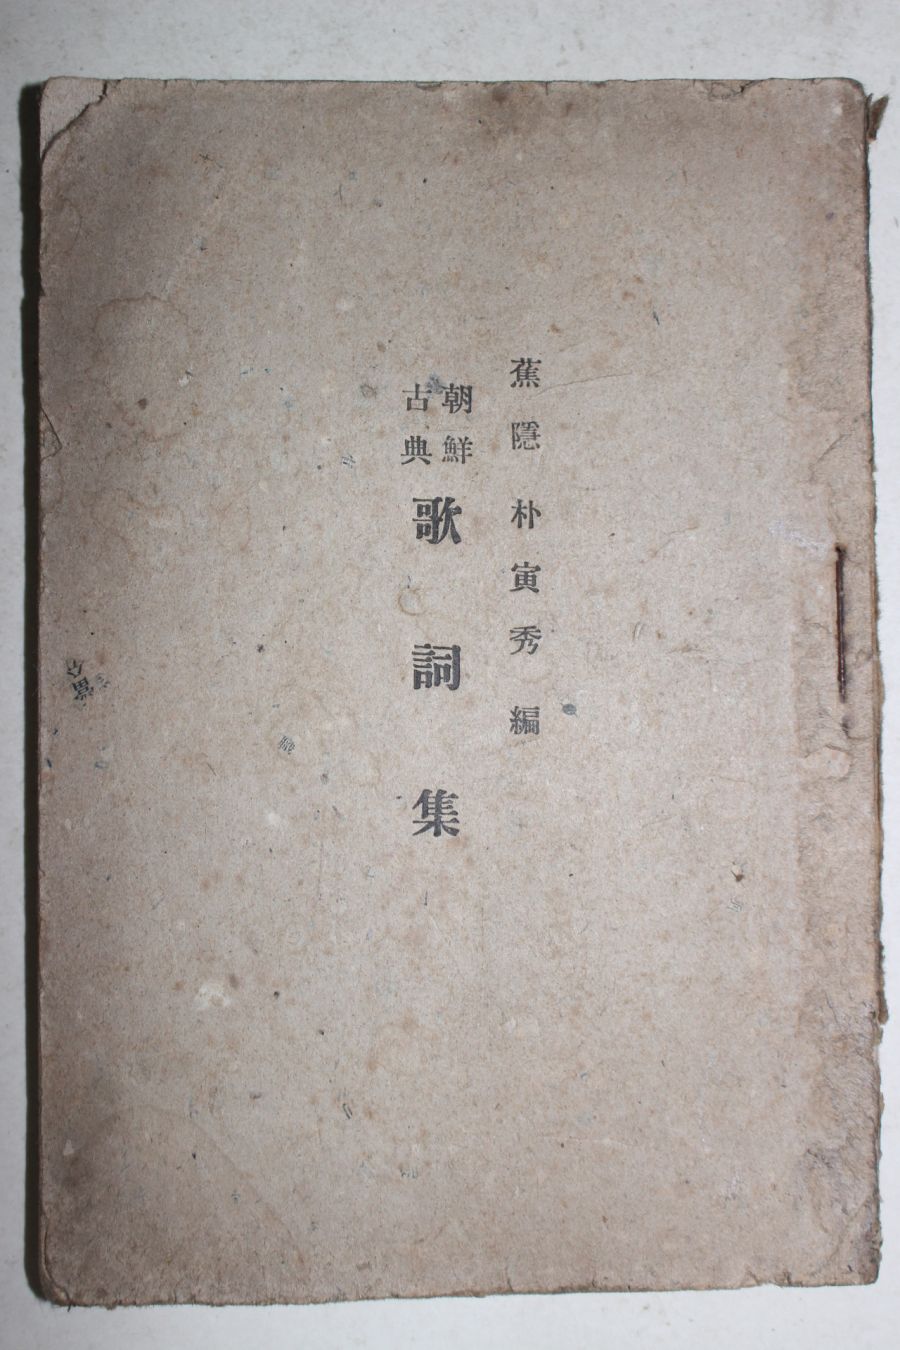 蕉隱 朴寅秀 編
朝鮮
古典
歌詞集